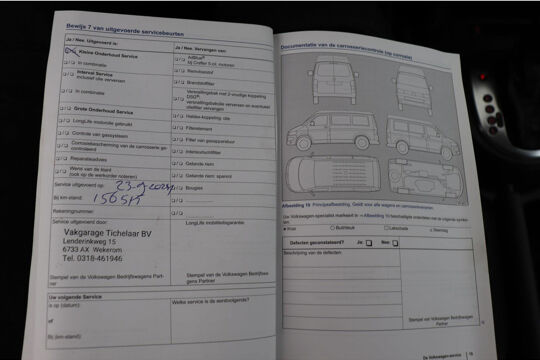 Bewijs 7 van uitgevoerde servicebeurten
Ja / Nee. Uitgevoerd is:
Kleine Onderhoud Service
In combinatie
Interval Service
inclusief olie verversen
In combinatie
Grote Onderhoud Service
LongLife motorolie gebruikt
Controle van gassysteem
Carrosseriebescherming van de carrosserie gecontroleerd
Reparatieadvies
Wens van de klant
(ook op de werkorder noteren)
Service uitgevoerd op:
Bij km-stand:
Rekeningnummer:
Service uitgevoerd door:
Vakgarage Tichelaar BV
Lenderinkweg 15
6733 AX Wekerom
Tel. 0318-461946
Stempel van de Volkswagen Bedrijfswagens Partner
Uw volgende Service
is op (datum):
of
Bij (km-stand):
Ja / Nee. Vervangen van:
AdBlue®
bij Crafter 5-cil. motoren
Remvloeistof
Brandstoffilter
Versnellingsbak met 2-voudige koppeling
DSG®:
versnellingsbakolie verversen en eventueel
oliefilter vervangen
Haldex-koppeling: olie
Filterelement
Filter van gasapparatuur
Interieurluchtfilter
Getande riem
Getande riem: spanrol
Bougies
LongLife mobiliteitsgarantie:
Stempel van de Volkswagen Bedrijfswagens Partner
Welke service is de eerstvolgende?
Documentatie van de carrosseriecontrole (op corrosie)
Afbeelding 10 Principeafbeelding. Geldt voor alle wagens en carrosserievarianten
Uw Volkswagen-specialist markeert in → Afbeelding 10 beschadigde onderdelen met de volgende symbolen:
Kras
Buil/deuk
Lakschade
Steenslag
Defecten geconstateerd? Ja: Nee:
Beschrijving van de defecten:
Stempel van Volkswagen Bedrijfswagens
Partner
De Volkswagen-service